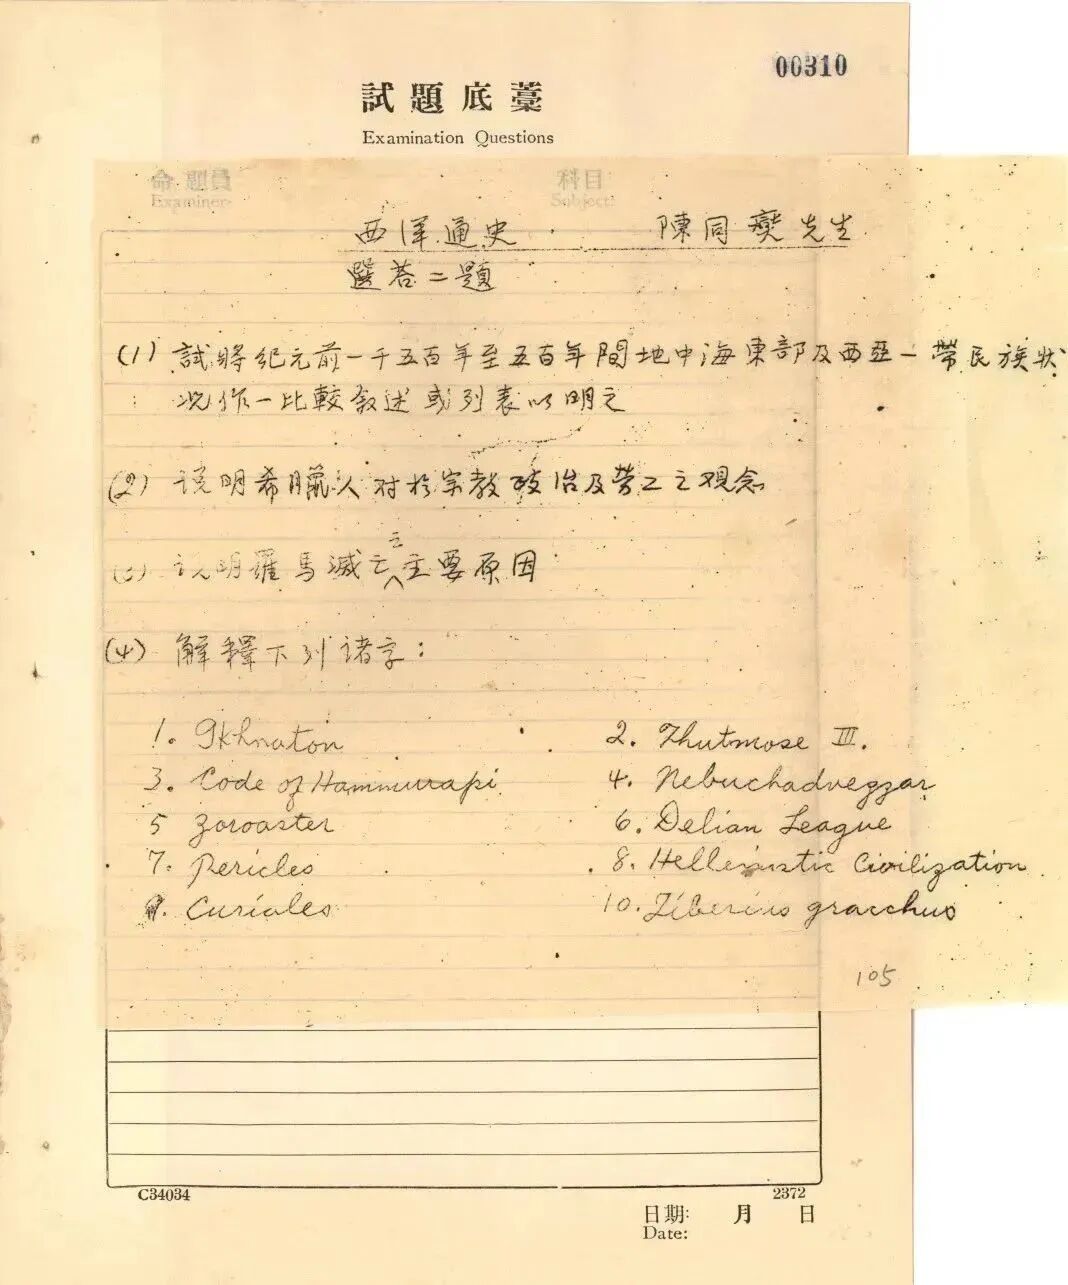 00310
試題底藁
Examination Questions
命題員 科目
Examiner: Subject:
西洋通史 陳同燮先生
選答二題
(1) 試將紀元前一千五百年至五百年間地中海東部及西亞一帶民族狀
況作一比較敘述或列表以明之
(2) 说明希臘人对於宗教政治及勞工之观念
(3) 说明羅馬滅亡之主要原因
(4) 解釋下列諸字：
1. Ikhnaton 2. Thutmose III.
3. Code of Hammurapi 4. Nebuchadvezzar
5 Zoroaster 6. Delian League
7. Pericles 8. Hellenistic Civilization
9. Curiales 10. Tiberius gracchus
105
C34034 2372
日期: 月 日
Date: